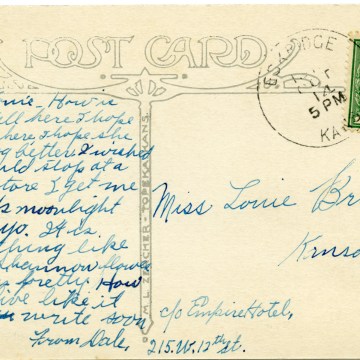 POST CARD
nie - How is
ll here I hope
here I hope she
g better I wished
uld stop at a
tore I get me
s moonlight
yo. It is
thing like
now flow
pretty. How
ive like it
write soon
From Dale,
M.L. ZERCHER - TOPEKA, KANS.
ESKRIDGE
OCT
14
5 PM
KA
Miss Louie Br
Kansa
c/o Empire Hotel,
215 W. 12th St.